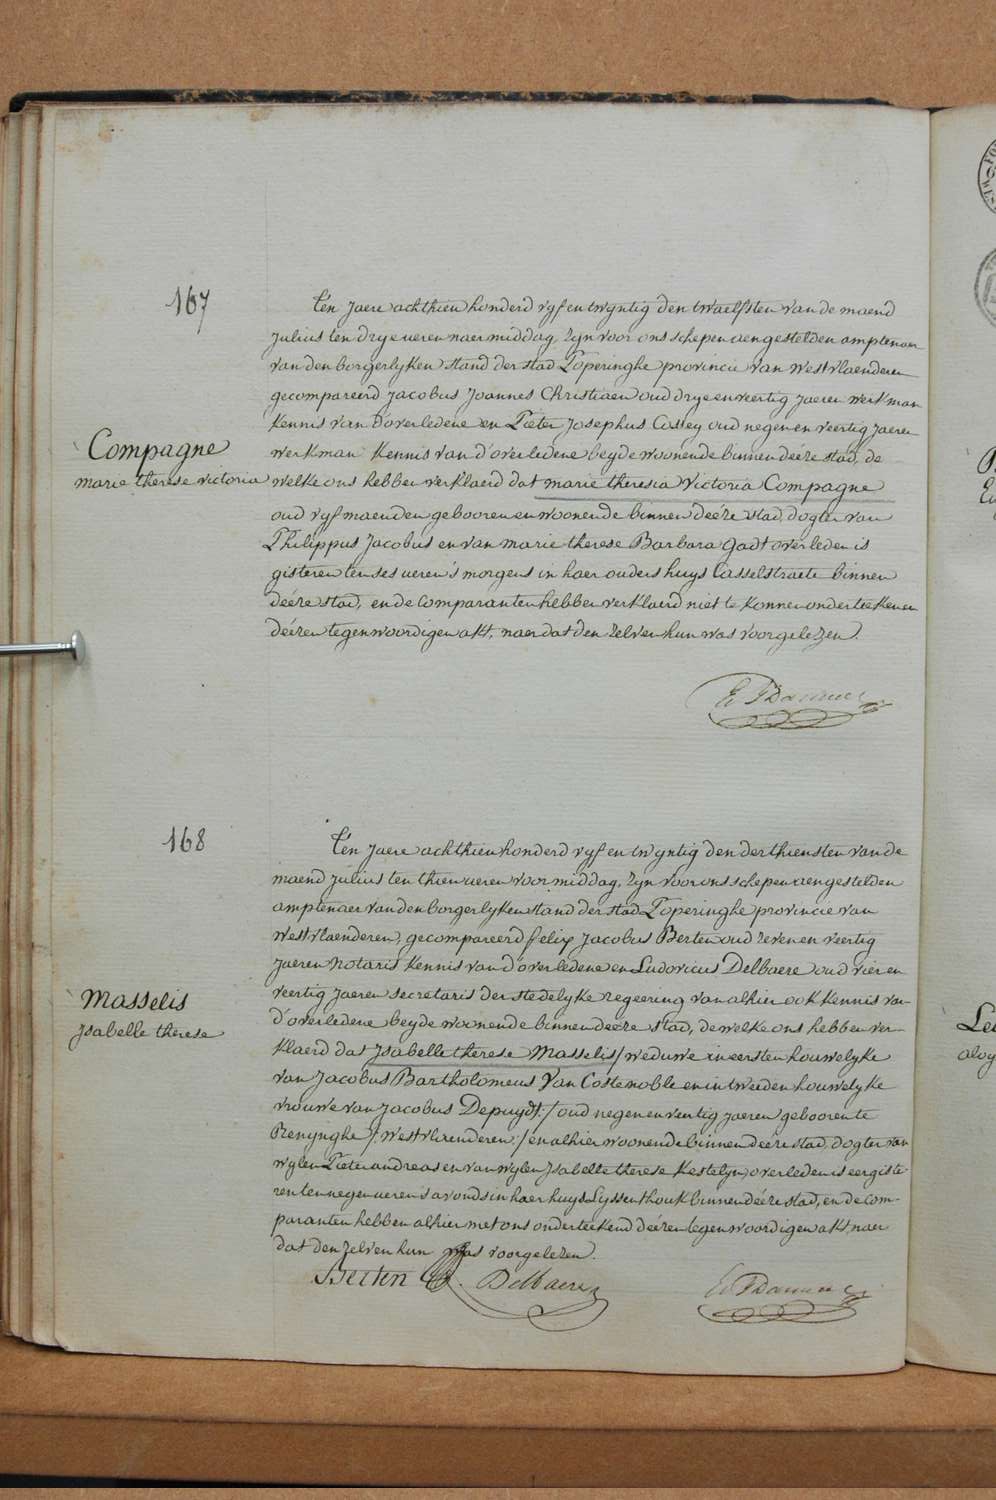 167
Ten jaere achthien honderd vyf en twyntig den twaelfsten van de maend
julius ten drye ueren naer middag, Zyn voor ons schepen aengestelden amptenaer
van den borgerlyken stand der stad Poperinghe provincie van Westvlaenderen
gecompareerd jacobus Joannes Christiaen oud drye en veertig jaeren werkman
Kennis van d'overledene en Pieter Josephus Cossey oud negen en veertig jaeren
Compagne
werkman Kennis van d'overledene beyde woonende binnen deéze stad, de
marie therese victoria
welke ons hebben verklaerd dat marie theresia Victoria Compagne
oud vyf maenden gebooren en woonende binnen deéze stad, dogter van
Philippus Jacobus en van marie therese Barbara Gadt overleden is
gisteren ten ses ueren 's morgens in haer ouders huys Casselstraete binnen
deéze stad, en de Comparanten hebben verklaerd niet te konnen onderteekenen
deézen tegenwoordigen akt, naer dat den zelven hun was voorgelezen.
168
Ten Jaere achthien honderd vyf en twyntig den derthiensten van de
maend julius ten thien ueren voor middag, Zyn voor ons schepen aengestelden
amptenaer van den borgerlyken stand der stad Poperinghe provincie van
Westvlaenderen, gecompareerd felix Jacobus Berten oud Zeven en veertig
jaeren notaris Kennis van d'overledene en Ludovicus Delbaere oud vier en
Masselis
veertig jaeren secretaris der stedelyke regeering van alhier ook kennis van
Isabelle therese
d'overledene beyde woonende binnen deeze stad, de welke ons hebben ver-
klaerd dat Isabelle therese Masselis / weduwe in eersten houwelyke
van Jacobus Bartholomeus Van Costenoble en in tweeden houwelyke
vrouwe van Jacobus Depuydt:/ oud negen en veertig jaeren gebooren te
Renynghe /: Westvlaenderen:/ en alhier woonende binnen deéze stad, dogter van
wylen Pieter andreas en van wylen Isabelle therese Kestelyn, overleden is eergiste-
ren ten negen ueren s avonds in haer huys Lyssenthouk binnen deéze stad, en de Com-
paranten hebben alhier met ons onderteekend deézen tegenwoordigen akt, naer
dat den Zelven hun was voorgelezen.
Berten Delbaere